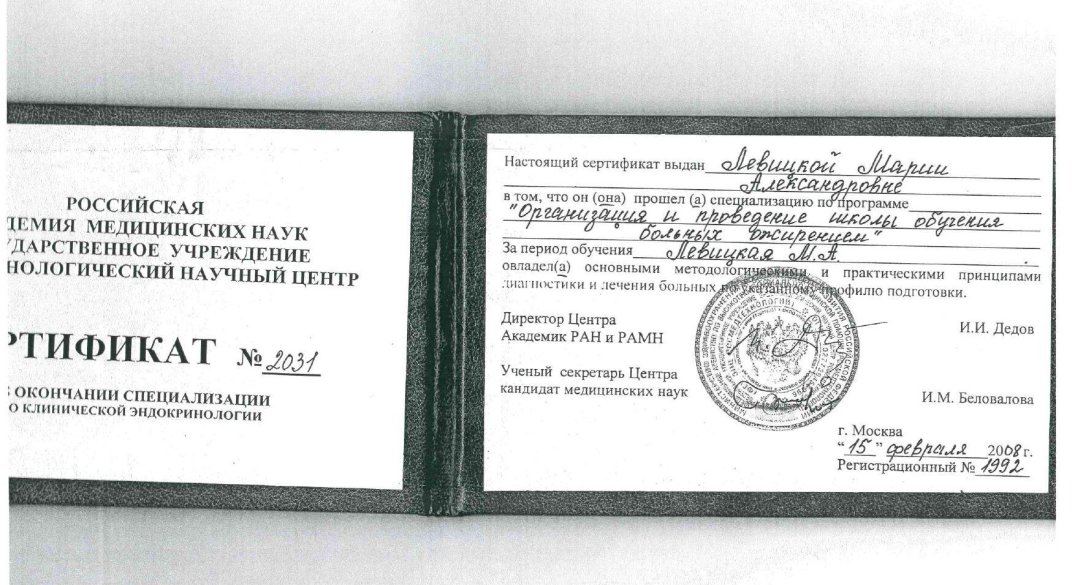 РОССИЙСКАЯ
ДЕМИЯ МЕДИЦИНСКИХ НАУК
УДАРСТВЕННОЕ УЧРЕЖДЕНИЕ
НОЛОГИЧЕСКИЙ НАУЧНЫЙ ЦЕНТР
РТИФИКАТ №2031
ОКОНЧАНИИ СПЕЦИАЛИЗАЦИИ
О КЛИНИЧЕСКОЙ ЭНДОКРИНОЛОГИИ
Настоящий сертификат выдан Левицкой Марии
Александровне
в том, что он (она) прошел (а) специализацию по программе
"Организация и проведение школы обучения
больных ожирением"
За период обучения Левицкая М.А.
овладел(а) основными методологическими и практическими принципами
диагностики и лечения больных по указанному профилю подготовки.
Директор Центра
Академик РАН и РАМН
И.И. Дедов
Ученый секретарь Центра
кандидат медицинских наук
И.М. Беловалова
г. Москва
"15" февраля 2008 г.
Регистрационный № 1992